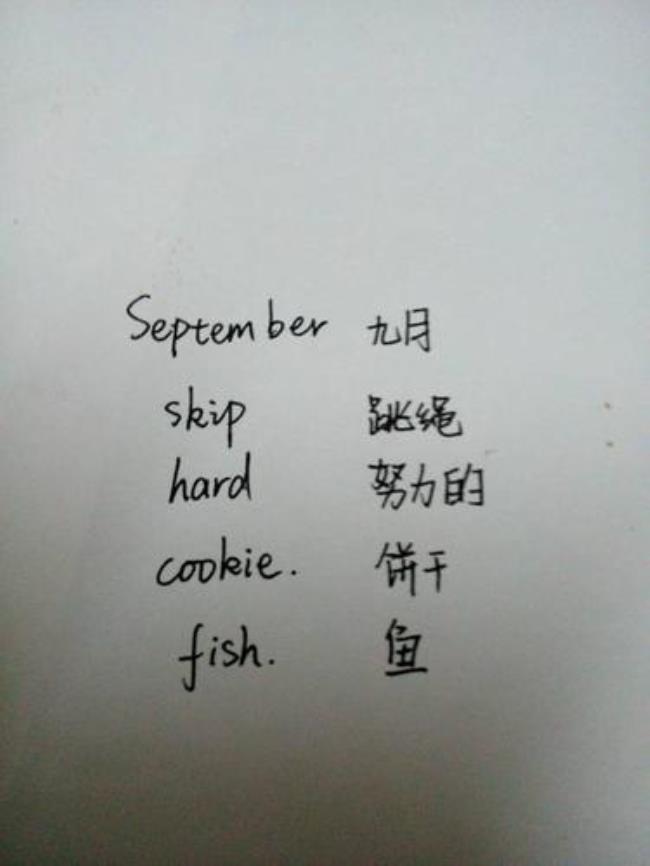 September 九月
skip 跳绳
hard 努力的
cookie. 饼干
fish. 鱼